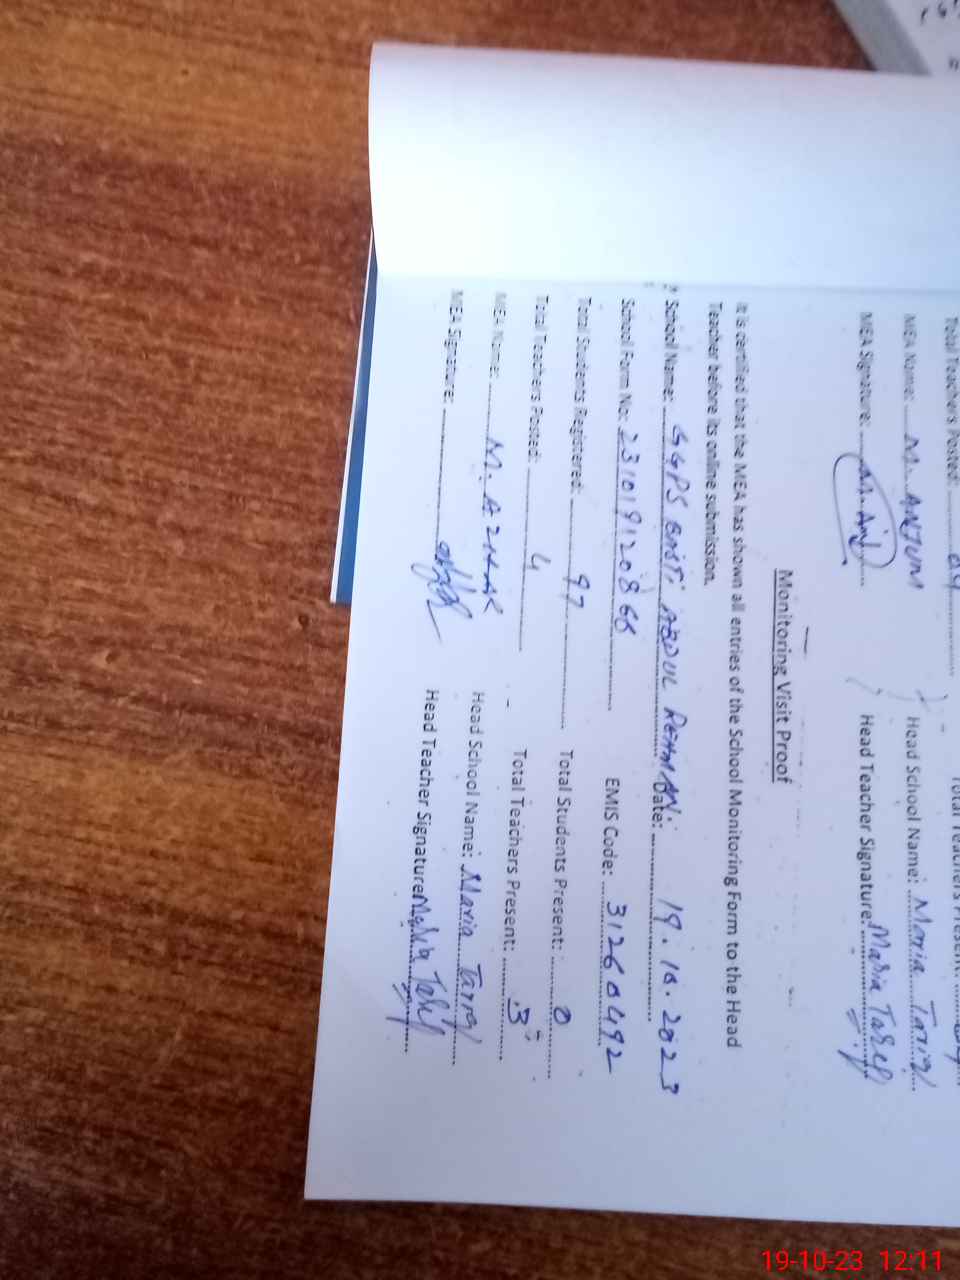 Total Teachers Posted: 04
MEA Name: M. ANJUM Head School Name: Maria Tariq
MEA Signature: Head Teacher Signature: Maria
Monitoring Visit Proof
It is certified that the MEA has shown all entries of the School Monitoring Form to the Head
Teacher before its online submission.
School Name: GGPS BASTI ABDUL REHMAN. Date: 19.10.2023
School Form No: EMIS Code: 31260492
Total Students Registered: 97 Total Students Present: 0
Total Teachers Posted: 4 Total Teachers Present: 3
MEA Name: M. AZHAR Head School Name: Maria Tariq
MEA Signature: Head Teacher Signature:
19-10-23 12:11